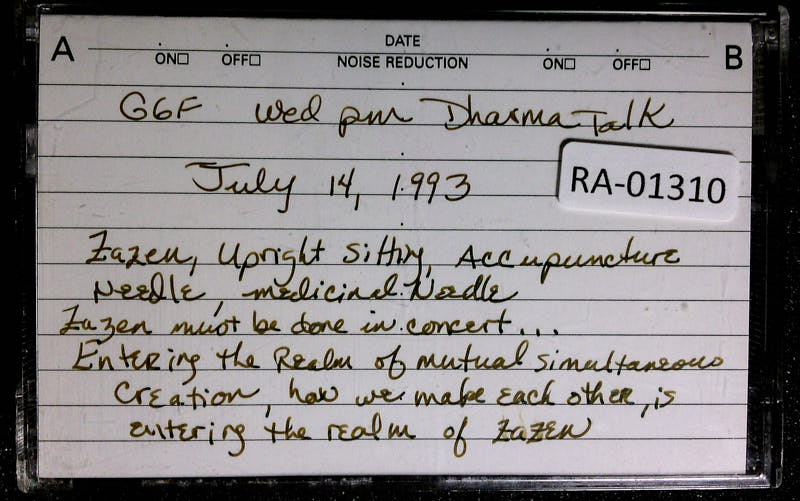 A DATE B
ON□ OFF□ NOISE REDUCTION ON□ OFF□
GGF Wed pm Dharma Talk
July 14, 1993
RA-01310
Zazen, Upright Sitting, Accupuncture
Needle, medicinal Needle
Zazen must be done in concert...
Entering the Realm of mutual simultaneous
Creation, how we make each other, is
entering the realm of zazen